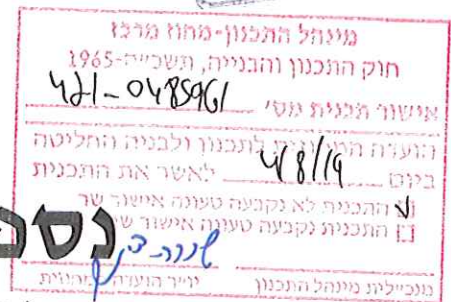 מינהל התכנון-מחוז מרכז
חוק התכנון והבנייה, תשכ״ה-1965
אישור תכנית מס׳ 421-0485961
הועדה המחוזית לתכנון ולבניה החליטה
ביום 4/8/19 לאשר את התכנית
התכנית לא נקבעה טעונה אישור שר
התכנית נקבעה טעונה אישור
נספ
מנכ״לית מינהל התכנון
יו״ר הועדה המחוזית